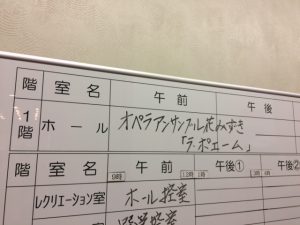 階 室名 午前 午後
1階 ホール オペラアンサンブル花みずき
「ラ・ボエーム」
階 室名 午前 午後① 午後②
9時 12時 13時
レクリエーション室 ホール控室